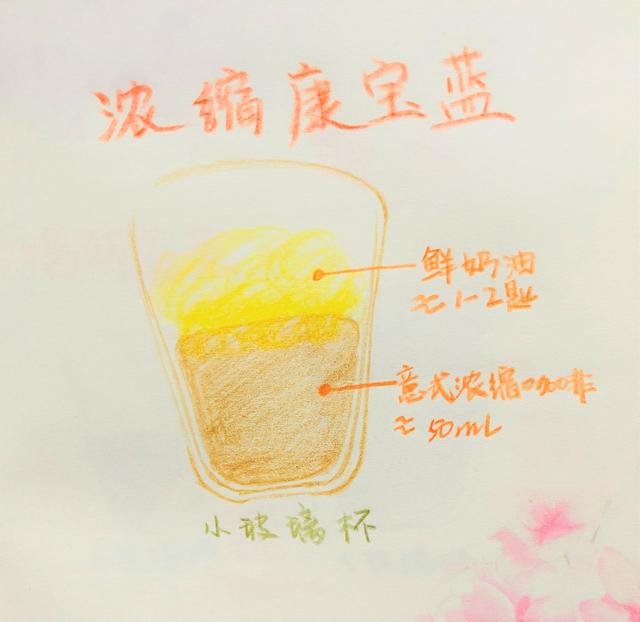 浓缩康宝蓝
鲜奶油
≈1-2匙
意式浓缩咖啡
≈50mL
小玻璃杯